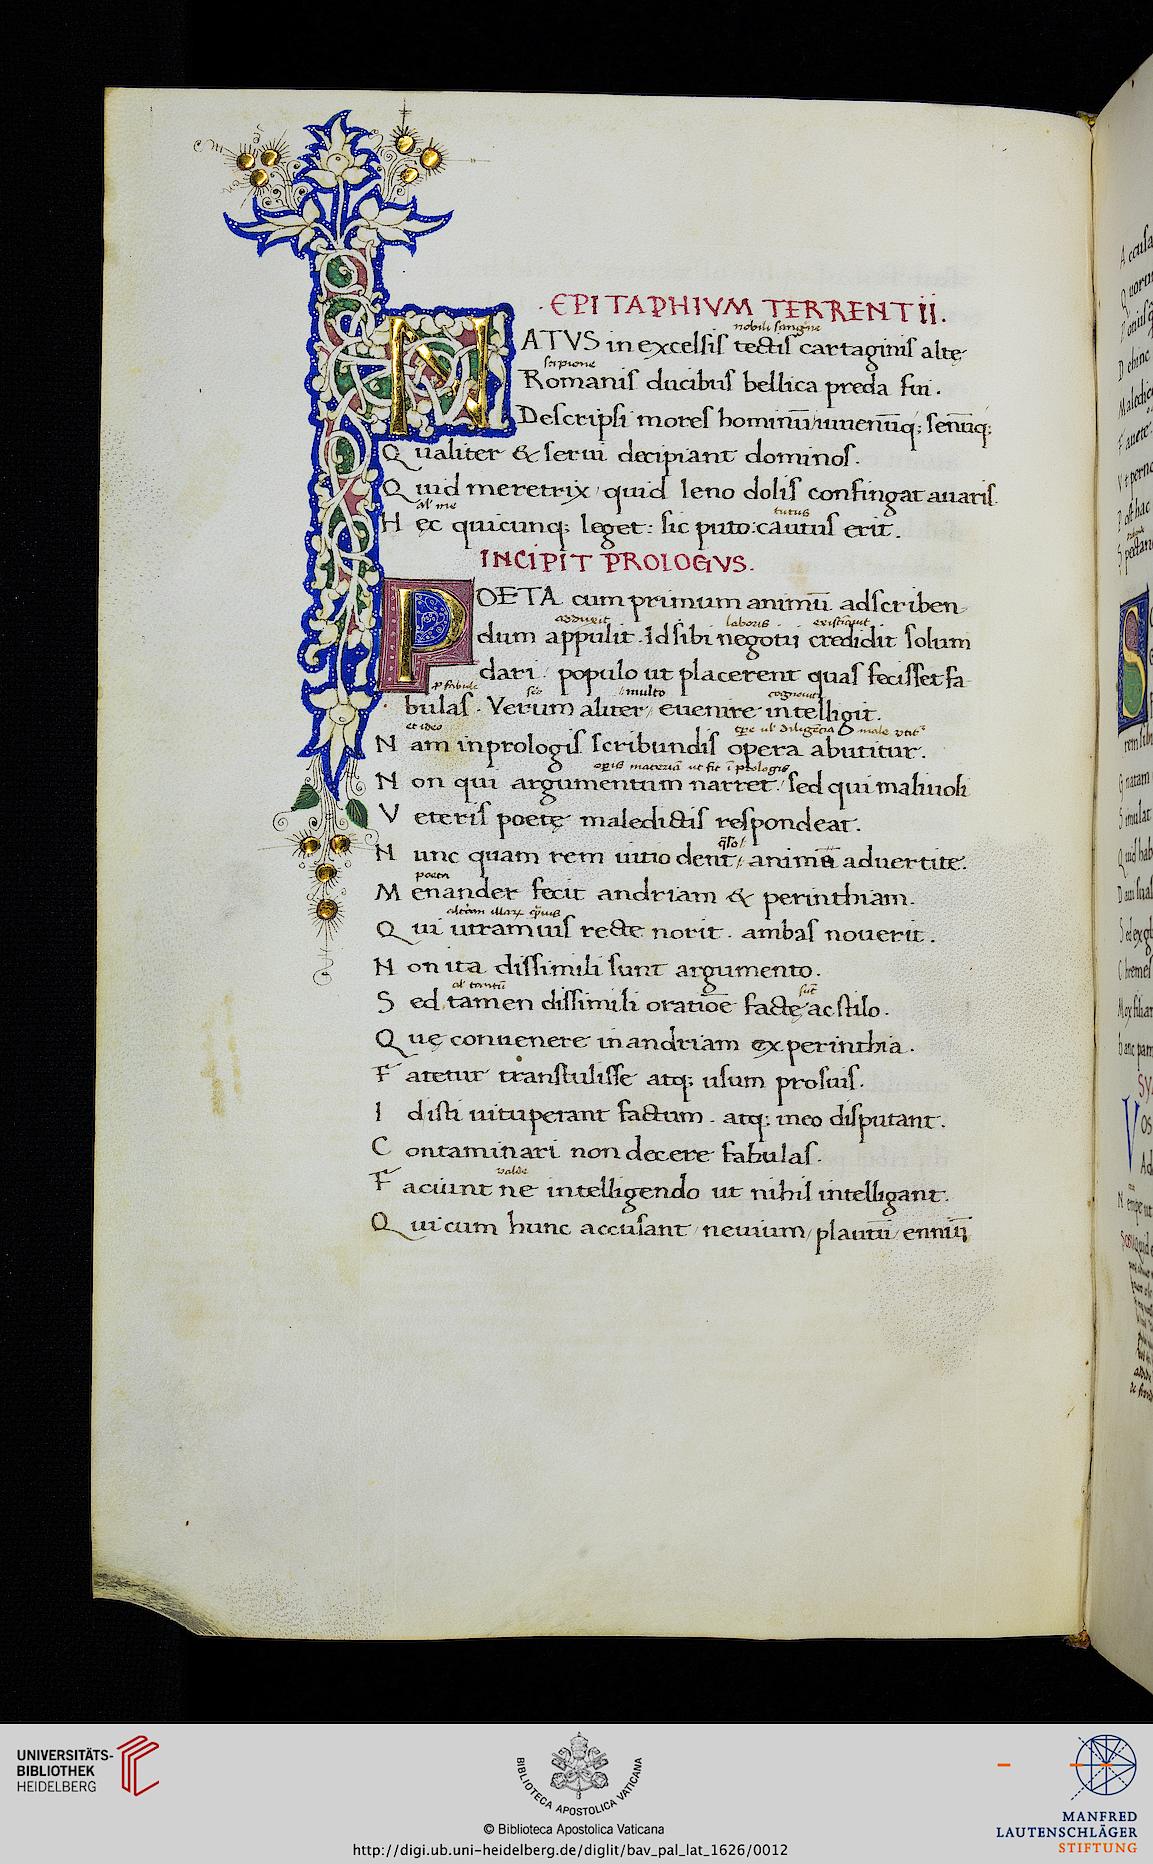 ·EPITAPHIVM TERRENTII.
nobili sangine
NATVS in excelsis tectis cartaginis altę
scipione
Romanis ducibus bellica preda fui.
Descripsi mores hominū/iuuenūq; senūq;
Qualiter & serui decipiant dominos.
Quid meretrix/quid leno dolis confingat auaris.
al' me
tutus
Hęc quicunq; leget: sic puto:cautus erit.
INCIPIT PROLOGVS.
POETA cum primum animū adscriben
adduxit
laboris
existimauit
dum appulit. Id sibi negotii credidit solum
dari/ populo ut placerent quas fecisset fa
multo
cognouit
bulas. Verum aliter/ euenire intelligit.
et ideo
Nam in prologis scribundis opera abutitur.
Non qui argumentum narret/sed qui maliuoli
Veteris poetę maledictis respondeat.
Nunc quam rem uitio dent/ animū aduertite.
poeta
Menander fecit andriam & perinthiam.
Qui utramuis recte norit. ambas nouerit.
Non ita dissimili sunt argumento.
al' tantū
Sed tamen dissimili oratiōe factę ac stilo.
Quę conuenere in andriam ex perinthia.
Fatetur transtulisse atq; usum pro suis.
Idisti uituperant factum. atq; ineo disputant.
Contaminari non decere fabulas.
valde
Faciunt ne intelligendo ut nihil intelligant.
Qui cum hunc accusant/neuium/plautū/enniū
UNIVERSITÄTS-
BIBLIOTHEK
HEIDELBERG
BIBLIOTECA APOSTOLICA VATICANA
© Biblioteca Apostolica Vaticana
http://digi.ub.uni-heidelberg.de/diglit/bav_pal_lat_1626/0012
MANFRED
LAUTENSCHLÄGER
STIFTUNG